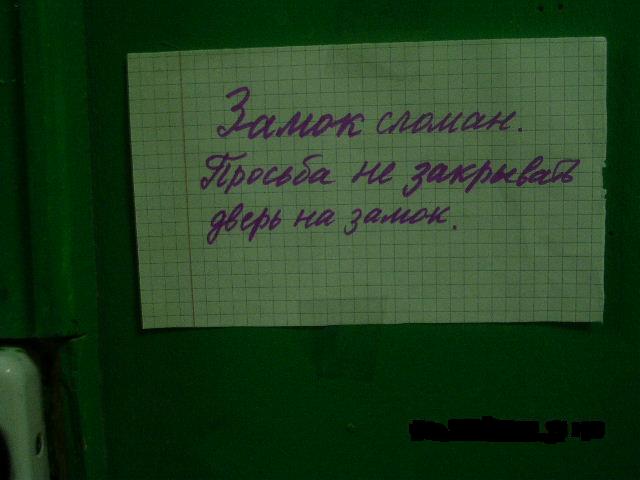 Замок сломан.
Просьба не закрывать
дверь на замок.